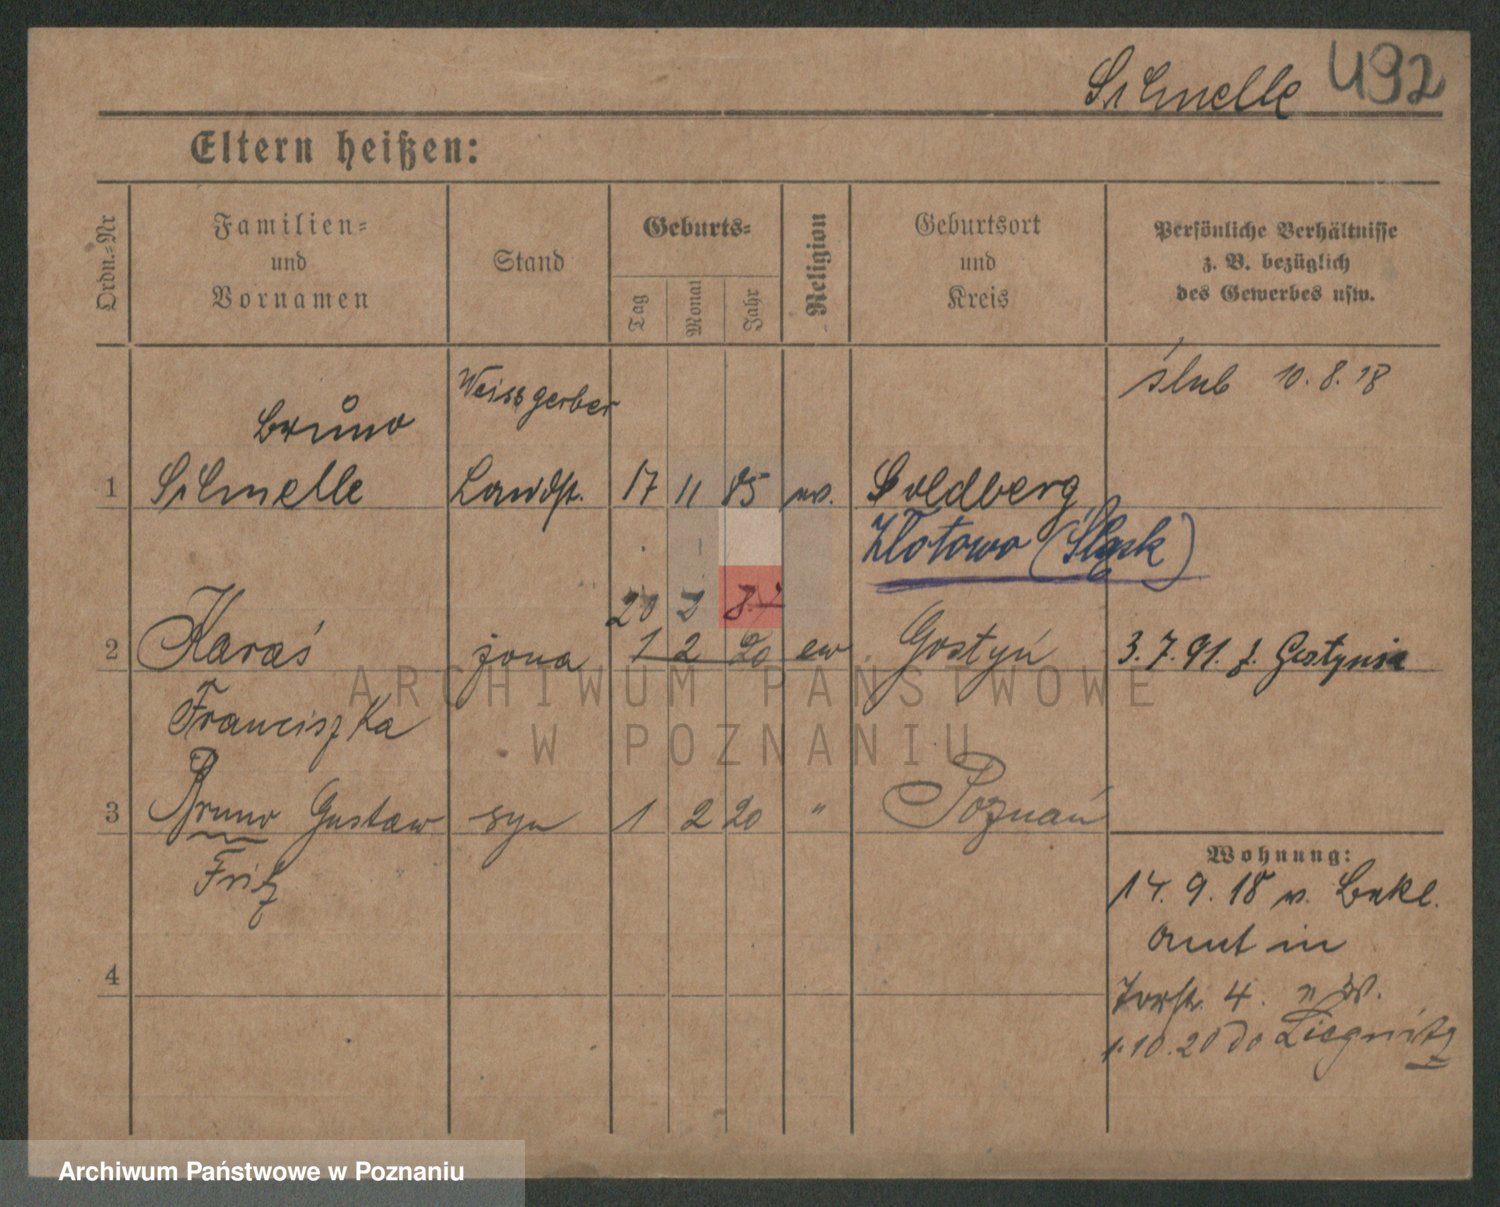 Schnelle 492
Eltern heißen:
Ordn.-Nr
Familien-
und
Vornamen
Stand
Geburts-
Tag
Monat
Jahr
Religion
Geburtsort
und
Kreis
Persönliche Verhältnisse
z. B. bezüglich
des Gewerbes usw.
ślub 10.8.18
Bruno
Weissgerber
1 Schnelle Landst. 17 11 85 ev. Goldberg
Złotowo (Śląsk)
20 2 87
2 Karaś żona 1 2 20 ew Gostyń 3.7.91. Gostynia
Franciszka
3 Bruno Gustaw syn 1 2 20 " Poznań
Fritz
Wohnung:
14.9.18 v. Bekl.
Amt in
4
4.
1.10.20 do Liegnitz
ARCHIWUM PAŃSTWOWE
W POZNANIU
Archiwum Państwowe w Poznaniu